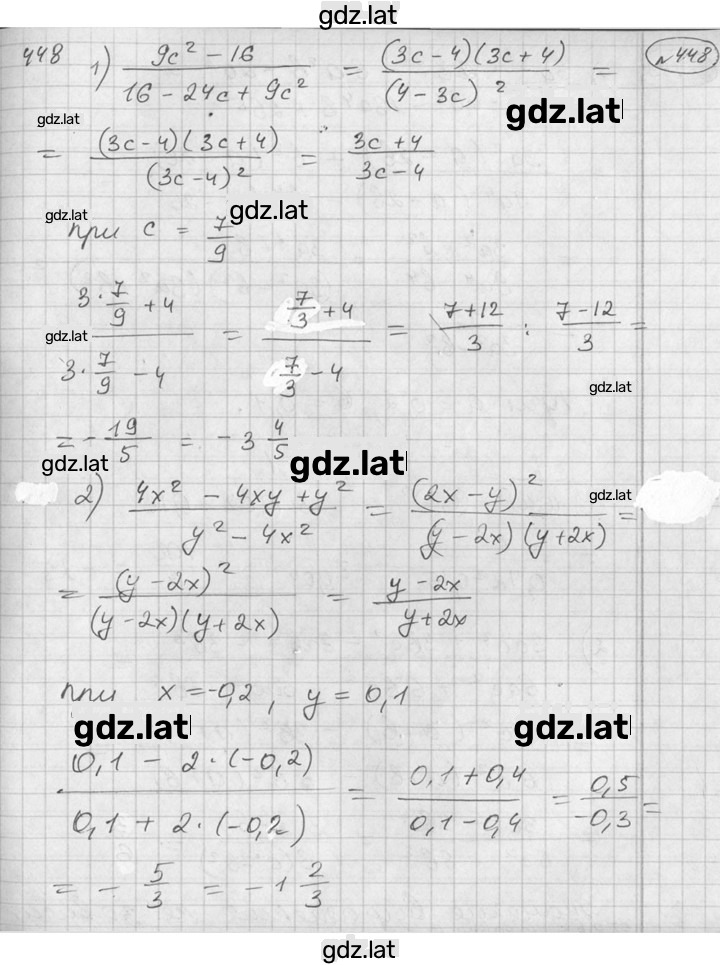 gdz.lat
448 1) (9c² - 16)/(16 - 24c + 9c²) = ((3c - 4)(3c + 4))/((4 - 3c)²) = №448
gdz.lat
gdz.lat
= ((3c - 4)(3c + 4))/((3c - 4)²) = (3c + 4)/(3c - 4)
gdz.lat gdz.lat
при c = 7/9
(3·7/9 + 4)/(3·7/9 - 4) = (7/3 + 4)/(7/3 - 4) = (7 + 12)/3 : (7 - 12)/3 =
gdz.lat
gdz.lat
= - 19/5 = - 3 4/5
gdz.lat gdz.lat
2) (4x² - 4xy + y²)/(y² - 4x²) = ((2x - y)²)/((y - 2x)(y + 2x)) =
gdz.lat
= ((y - 2x)²)/((y - 2x)(y + 2x)) = (y - 2x)/(y + 2x)
при x = -0,2, y = 0,1
gdz.lat gdz.lat
(0,1 - 2·(-0,2))/(0,1 + 2·(-0,2)) = (0,1 + 0,4)/(0,1 - 0,4) = 0,5/-0,3 =
= - 5/3 = - 1 2/3
gdz.lat